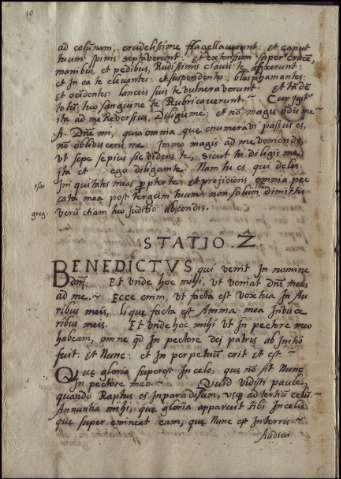 10
ad colunam, crudelissime flagellaverunt: et caput
tuum spinis septaverunt: et extensum super crucem,
manibus et pedibus, Rudissimis clauis te affixerunt:
et in ea te elevantes: et suspendentes: blasphamantes:
et occidentes: lancea suis te vulneraverunt: et ta de
totũ, tuo sanguine te Rubricaverunt. Cur igit
ita ad me Reversus, Diligis me: et nõ magis odis me
A. Dñe mi, quia omnia que enumeravi passus es,
nõ oblivisceris me. Immo magis ad me veniendo,
ut sepe sepius sic videas te, sicut tu diligis me,
ita et ego diligam te. Nam tu es qui deles
Iniquitates meas propter te: et projiciens omnia pec
cata mea post tergum tuum: non solum dimittis
verũ etiam tuo Juditio abscondis.
STATIO. 2.
BENEDICTVS qui venit In nomine
dñi. Et unde hoc mihi, ut veniat dñs meus
ad me. Ecce enim, ut facta est vox tua In Au
ribus meis, liquefacta est Amma mea In visce
ribus meis. Et unde hoc mihi ut In pectore meo
habeam, omne qd In pectore dei patris ab Initio
fuit: et Nunc: et In perpetuum erit et est.
Que gloria superest In celo, que nõ sit Nunc
In pectore meo. Quid vidisti paule,
quando Raptus es In paradisum, usq ad tertium celũ.
Annuntia mihi, que gloria apparuit tibi In celis
que super emineat eam, que Nunc est In terris.
Audivi